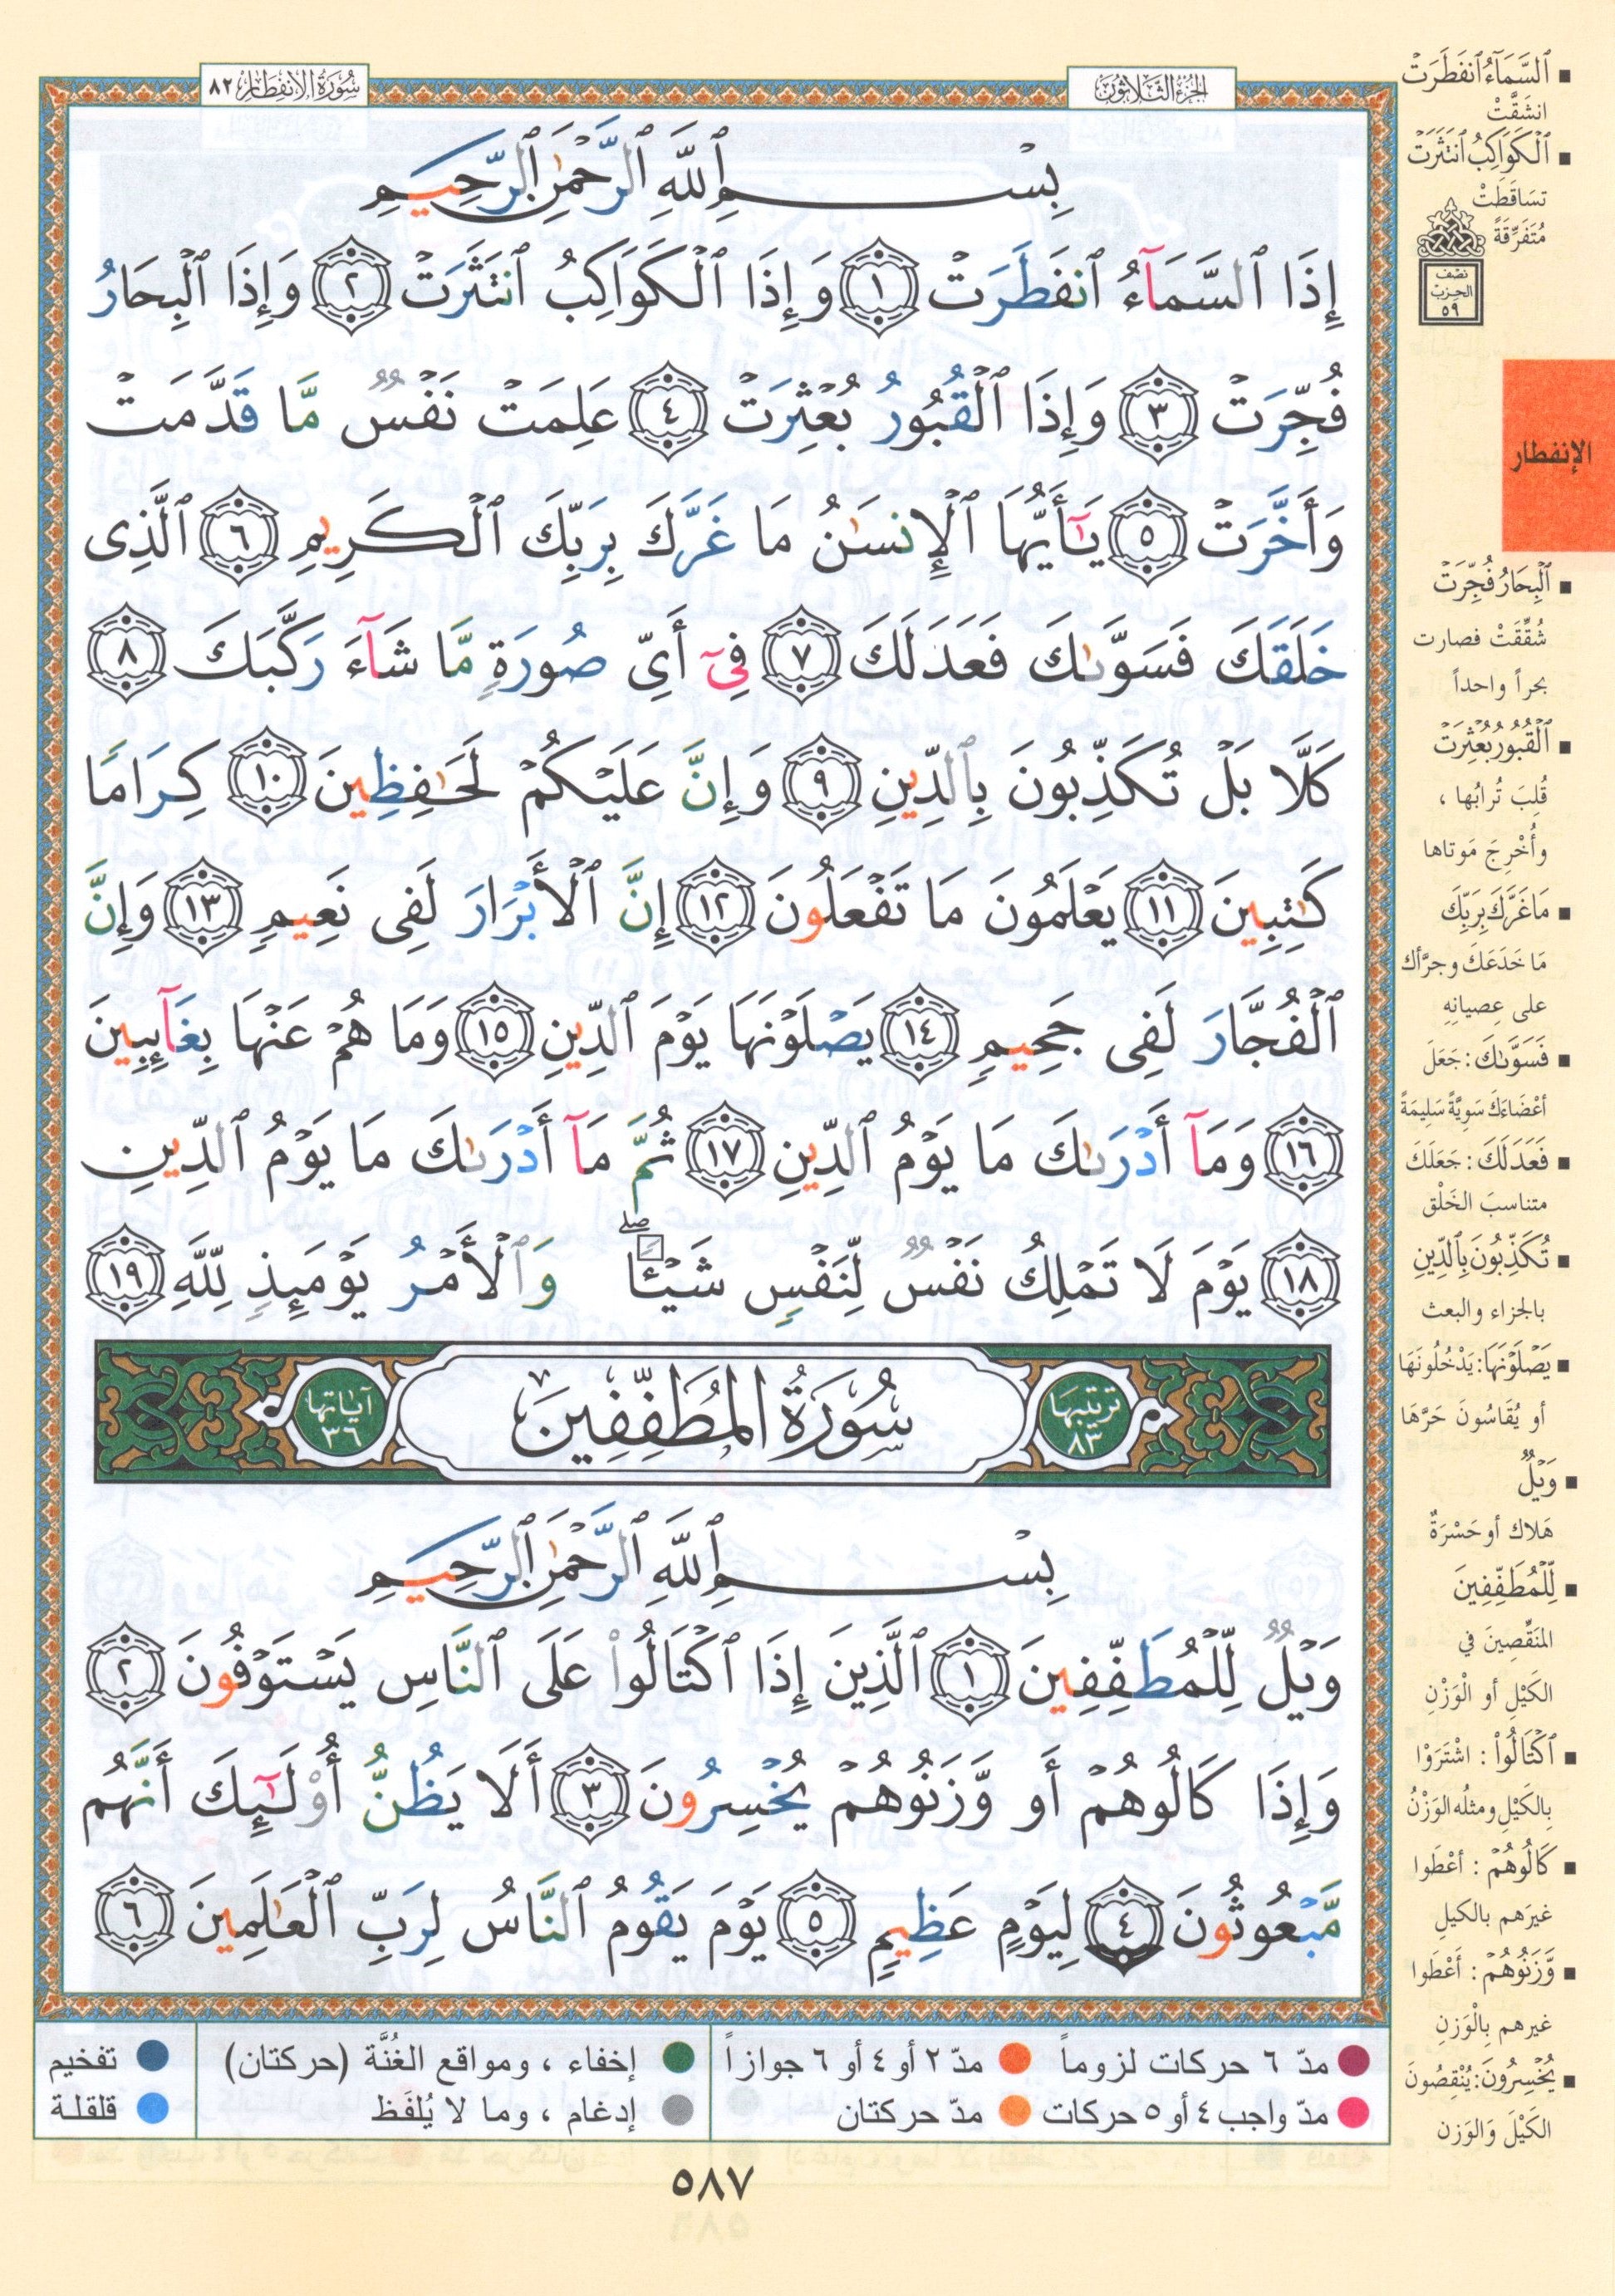 سُورَةُ الِانفِطَار ٨٢
الجُزْءُ الثَّلَاثُونَ
بِسْمِ ٱللَّهِ ٱلرَّحْمَٰنِ ٱلرَّحِيمِ
إِذَا ٱلسَّمَآءُ ٱنفَطَرَتْ ١ وَإِذَا ٱلْكَوَاكِبُ ٱنتَثَرَتْ ٢ وَإِذَا ٱلْبِحَارُ
فُجِّرَتْ ٣ وَإِذَا ٱلْقُبُورُ بُعْثِرَتْ ٤ عَلِمَتْ نَفْسٌ مَّا قَدَّمَتْ
وَأَخَّرَتْ ٥ يَٰٓأَيُّهَا ٱلْإِنسَٰنُ مَا غَرَّكَ بِرَبِّكَ ٱلْكَرِيمِ ٦ ٱلَّذِى
خَلَقَكَ فَسَوَّىٰكَ فَعَدَلَكَ ٧ فِىٓ أَىِّ صُورَةٍ مَّا شَآءَ رَكَّبَكَ ٨
كَلَّا بَلْ تُكَذِّبُونَ بِٱلدِّينِ ٩ وَإِنَّ عَلَيْكُمْ لَحَٰفِظِينَ ١٠ كِرَامًا
كَٰتِبِينَ ١١ يَعْلَمُونَ مَا تَفْعَلُونَ ١٢ إِنَّ ٱلْأَبْرَارَ لَفِى نَعِيمٍ ١٣ وَإِنَّ
ٱلْفُجَّارَ لَفِى جَحِيمٍ ١٤ يَصْلَوْنَهَا يَوْمَ ٱلدِّينِ ١٥ وَمَا هُمْ عَنْهَا بِغَآئِبِينَ
١٦ وَمَآ أَدْرَىٰكَ مَا يَوْمُ ٱلدِّينِ ١٧ ثُمَّ مَآ أَدْرَىٰكَ مَا يَوْمُ ٱلدِّينِ
١٨ يَوْمَ لَا تَمْلِكُ نَفْسٌ لِّنَفْسٍ شَيْـًٔا ۖ وَٱلْأَمْرُ يَوْمَئِذٍ لِّلَّهِ ١٩
ترتيبها ٨٣
سُورَةُ المُطَفِّفِينَ
آياتها ٣٦
بِسْمِ ٱللَّهِ ٱلرَّحْمَٰنِ ٱلرَّحِيمِ
وَيْلٌ لِّلْمُطَفِّفِينَ ١ ٱلَّذِينَ إِذَا ٱكْتَالُوا۟ عَلَى ٱلنَّاسِ يَسْتَوْفُونَ ٢
وَإِذَا كَالُوهُمْ أَو وَّزَنُوهُمْ يُخْسِرُونَ ٣ أَلَا يَظُنُّ أُو۟لَٰٓئِكَ أَنَّهُم
مَّبْعُوثُونَ ٤ لِيَوْمٍ عَظِيمٍ ٥ يَوْمَ يَقُومُ ٱلنَّاسُ لِرَبِّ ٱلْعَٰلَمِينَ ٦
ٱلسَّمَآءُ ٱنفَطَرَتْ
انشَقَّتْ
ٱلْكَوَاكِبُ ٱنتَثَرَتْ
تَسَاقَطَتْ
مُتَفَرِّقَةً
نصف
الحزب
٥٩
الإنفطار
ٱلْبِحَارُ فُجِّرَتْ
شُقِّقَتْ فصارت
بحراً واحداً
ٱلْقُبُورُ بُعْثِرَتْ
قُلِبَ تُرابُها ،
وأُخْرِجَ مَوتاها
مَا غَرَّكَ بِرَبِّكَ
مَا خَدَعَكَ وجرَّأك
على عِصيانِهِ
فَسَوَّىٰكَ : جَعَلَ
أعْضَاءَكَ سَوِيَّةً سَلِيمَةً
فَعَدَلَكَ : جَعَلَكَ
متناسبَ الخَلْق
تُكَذِّبُونَ بِٱلدِّينِ
بالجزاء والبعث
يَصْلَوْنَهَا : يَدْخُلُونَهَا
أو يُقَاسُونَ حَرَّهَا
وَيْلٌ
هَلاك أو حَسْرَةٌ
لِّلْمُطَفِّفِينَ
المنَقِّصِينَ في
الكَيْلِ أو الْوَزْنِ
ٱكْتَالُوا۟ : اشْتَرَوْا
بِالكَيْلِ ومثلُه الوَزْنُ
كَالُوهُمْ : أعْطَوا
غيرَهم بالكيلِ
وَّزَنُوهُمْ : أَعْطَوا
غيرهم بِالْوَزنِ
يُخْسِرُونَ : يُنْقِصُونَ
الكَيْلَ وَالوَزن
مدّ ٦ حركات لزوماً
مدّ ٢ أو ٤ أو ٦ جوازاً
إخفاء ، ومواقع الغُنَّة (حركتان)
تفخيم
مدّ واجب ٤ أو ٥ حركات
مدّ حركتان
إدغام ، وما لا يُلفَظ
قلقلة
٥٨٧